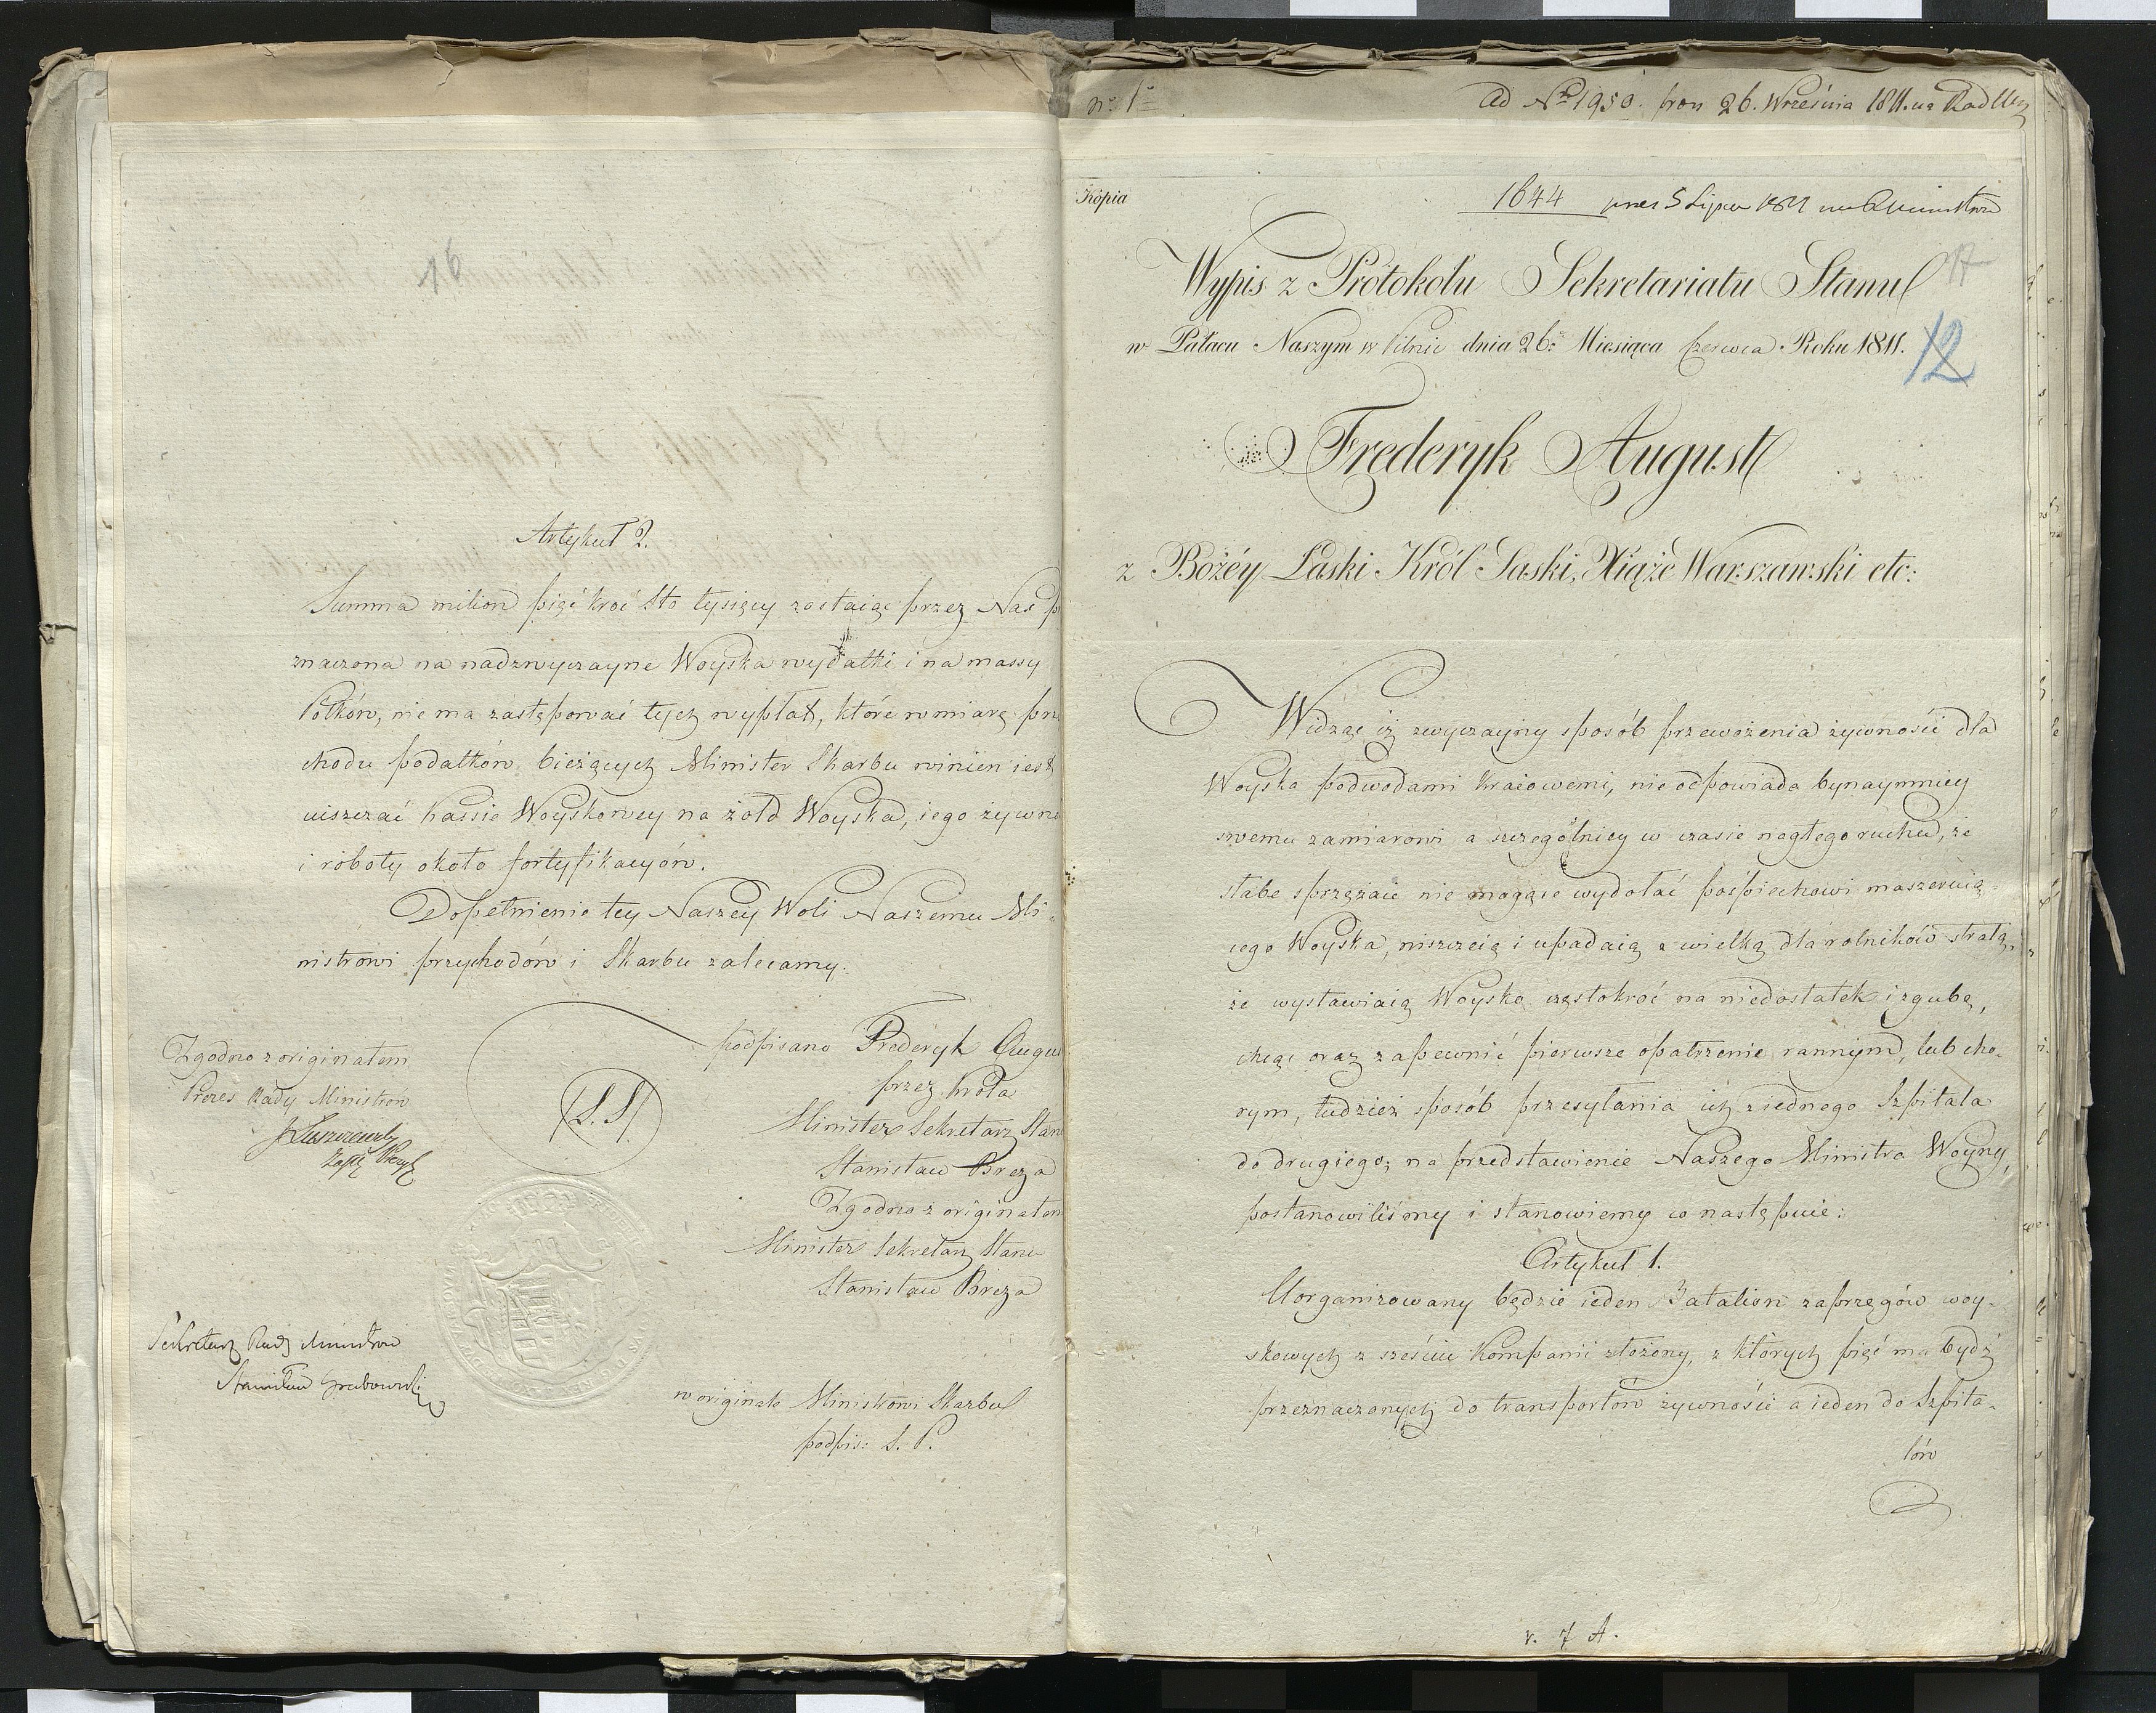 16
Artykuł 2.
Summa milion pięć kroć Sto tysięcy zostaiąc przez Nas
znaczona na nadzwyczayne Woyska wydatki i na massy
Półków, nie ma zastępować tych wypłat, które w miarę
chodu podatków bieżących Minister Skarbu winien iest
uiszczać Kassie Woyskowey na żołd Woyska, iego żywno
i roboty około fortyfikacyów.
Dopełnienie tey Naszey Woli Naszemu Mi-
nistrowi przychodów i Skarbu zalecamy.
podpisano Frederyk Augu
przez Króla
Minister Sekretarz Stan
Stanisław Breza
Zgodno z originałem
Minister Sekretarz Stanu
Stanisław Breza
(L. S)
Zgodno z originałem
Prezes Rady Ministrów
Sekretarz Rady Ministrów
Stanisław Grabowski
w originale Ministrowi Skarbu
podpis: S. P.
no 1o
Ad No 1950. 26. Września 1811. na Rad
Kopia
1644 5 Lipca 1811 na R Ministrów
Wypis z Protokołu Sekretariatu Stanu
w Pałacu Naszym w Pilnic dnia 26. Miesiąca Czerwca Roku 1811.
12
Frederyk August
z Bożéy Łaski Król Saski, Xiąże Warszawski etc:
Widząc iż zwyczayny sposób przewożenia żywności dla
Woyska podwodami Kraiowemi, nie odpowiada bynaymniey
swemu zamiarowi a szczególniey w czasie nagłego ruchu, że
słabe sprzężaie nie mogące wydołać pośpiechowi maszeruią-
cego Woyska, niszczeią i upadaią z wielką dla rolników stratą,
że wystawiaią Woysko częstokroć na niedostatek i zgubę,
chcąc oraz zapewnić pierwsze opatrzenie rannym, lub cho-
rym, tudzież sposób przesyłania ich z iednego Szpitala
do drugiego; na przedstawienie Naszego Ministra Woyny,
postanowiliśmy i stanowiemy co następuie:
Artykuł 1.
Uorganizowany będzie ieden Batalion zaprzęgów woy-
skowych z sześciu Kompanii złożony, z których pięć ma bydź
przeznaczonych do transportów żywności a ieden do Szpita-
lów
v. 7 A.